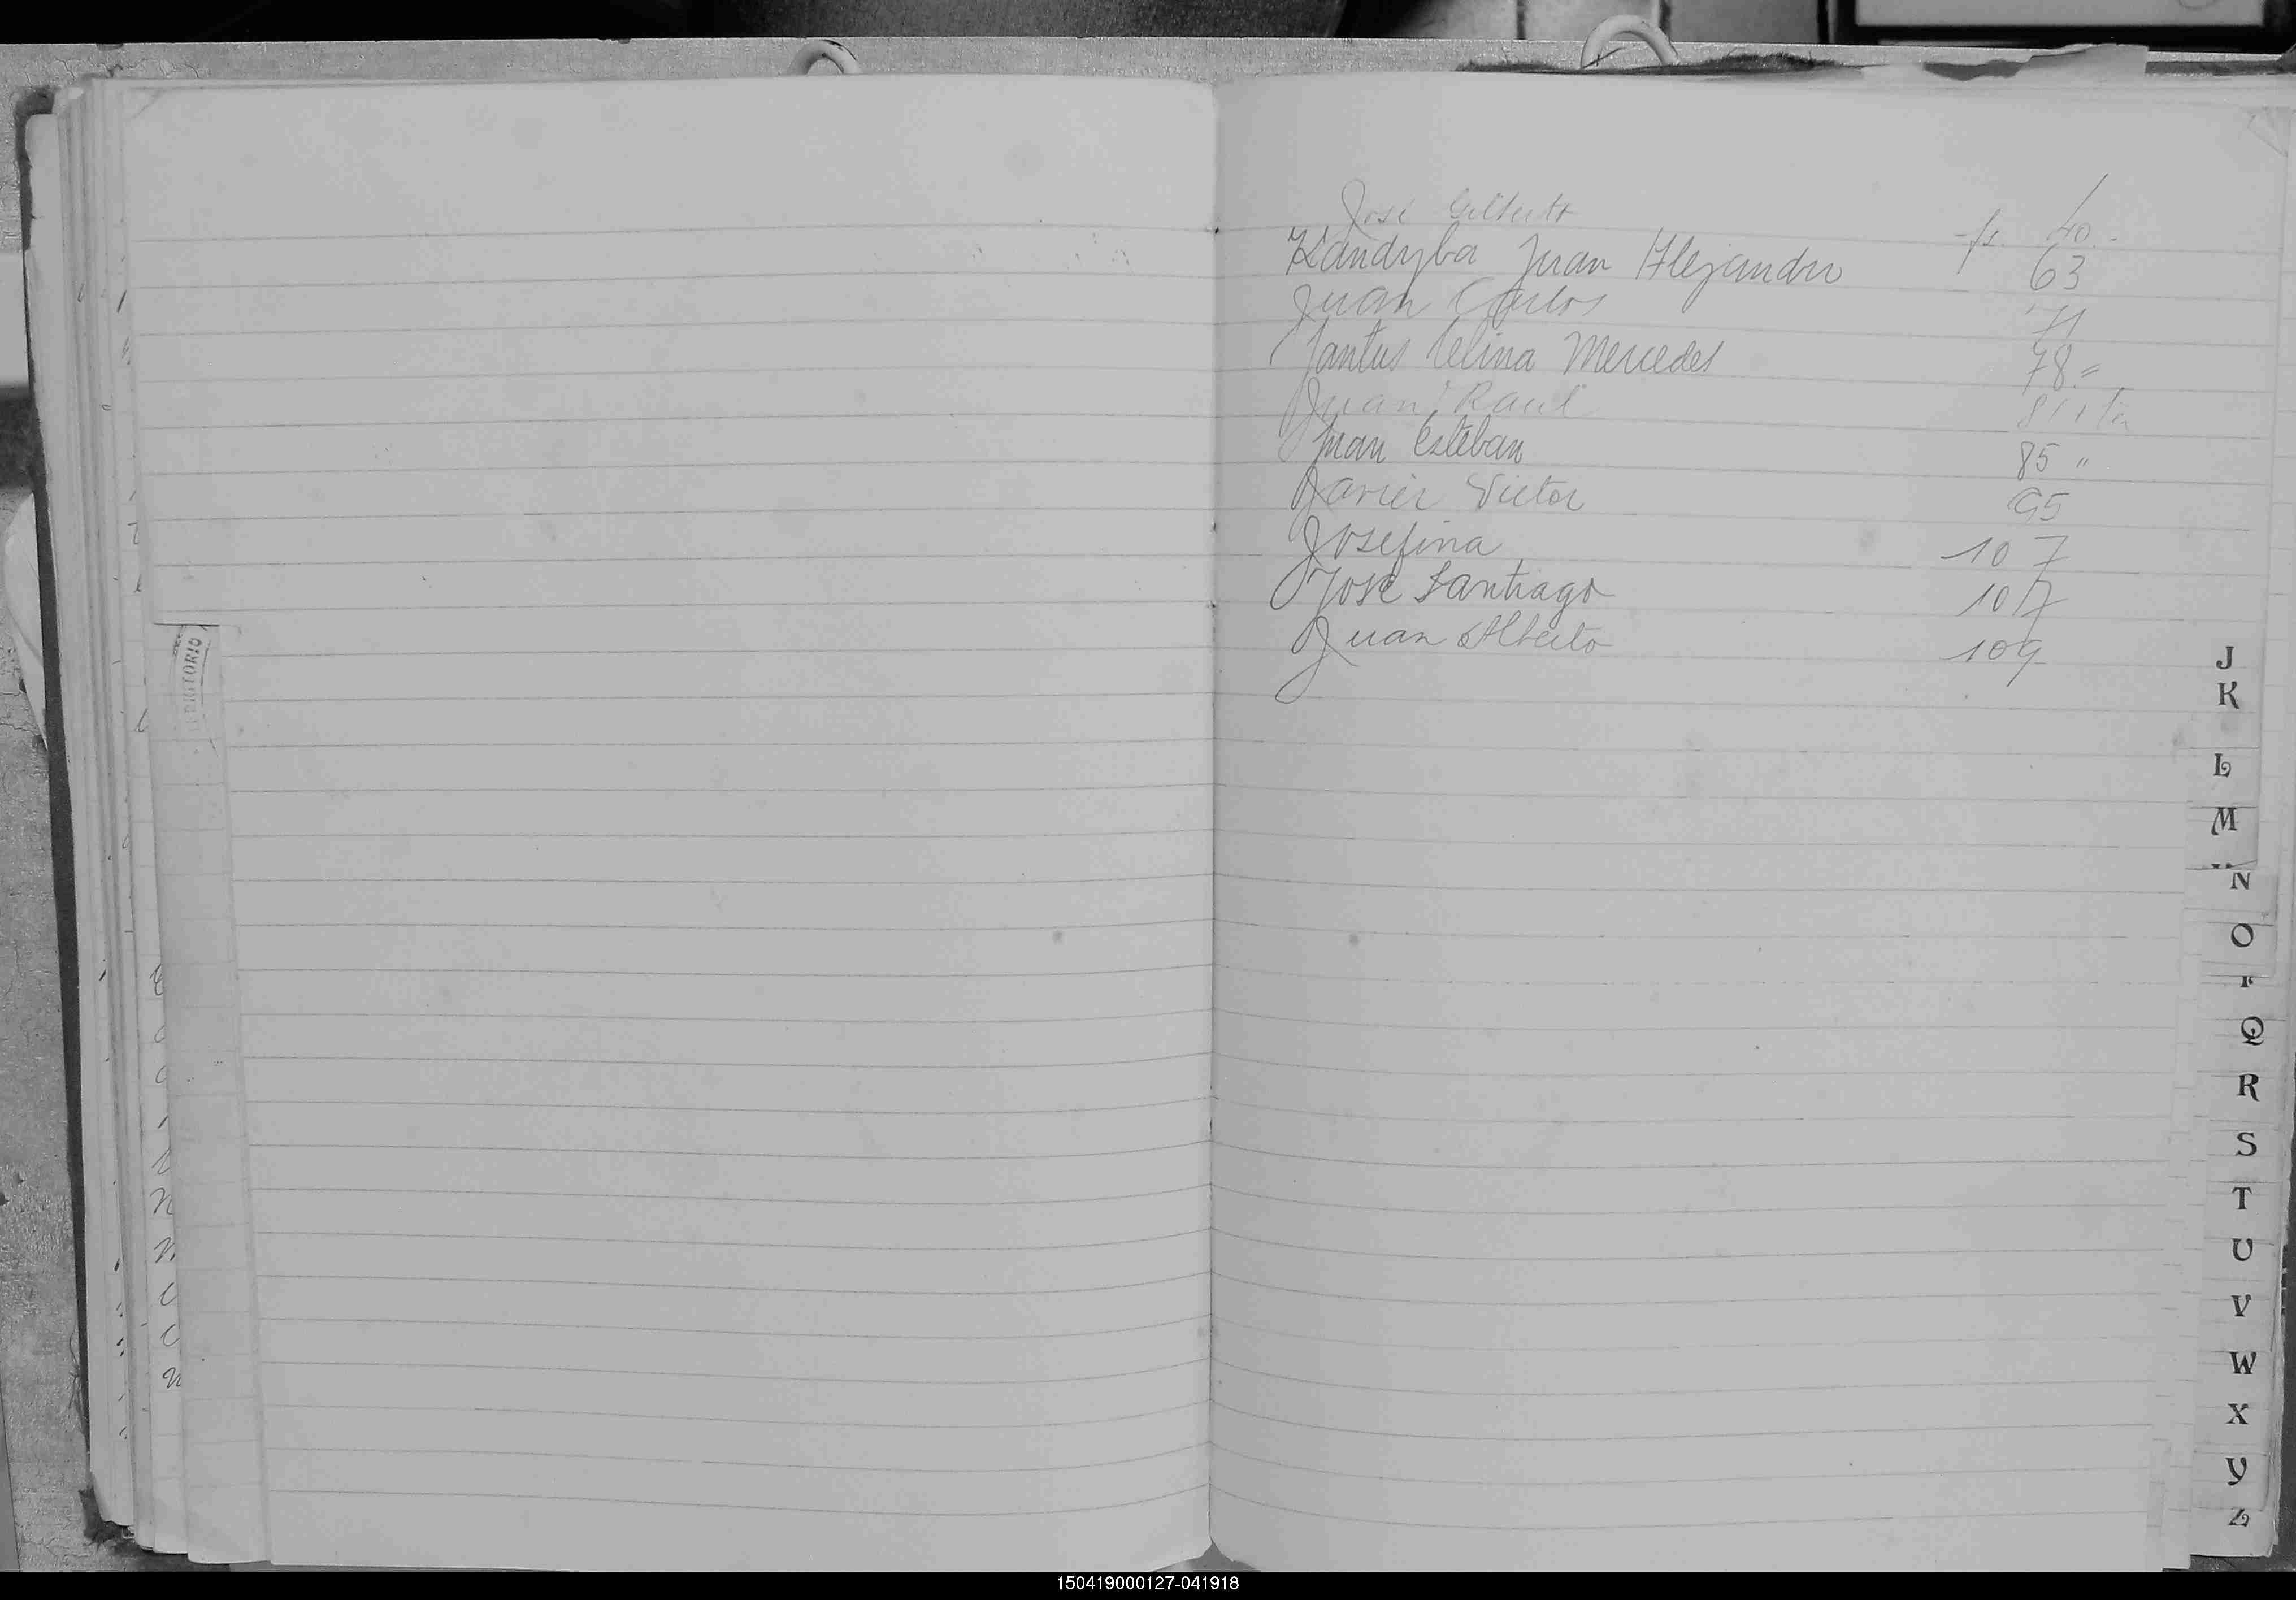 TERRITORIO
José Gilberto fs. 40.-
Kandyba Juan Alejandro 63
Juan Carlos 71
Jantus Celina Mercedes 78 "
Juan Raul
Juan Esteban 85 "
Javier Victor 95
Josefina 107
José Santiago 107
Juan Alberto 109
J
K
L
M
N
O
P
Q
R
S
T
U
V
W
X
Y
Z
150419000127-041918